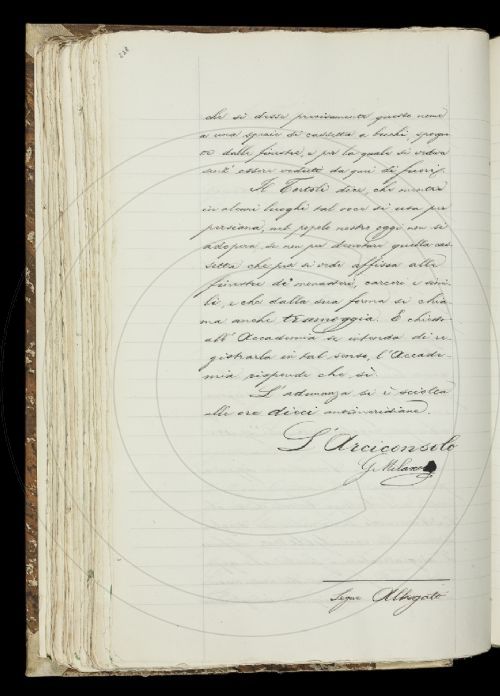 228
che si disse precisamente questo nome
a una specie di cassetta a buchi, sporgen
te dalle finestre, e per la quale si vedeva
senz' essere veduti da quei di fuori.
Il Tortoli dice, che mentre
in alcuni luoghi tal voce si usa per
persiana, nel popolo nostro oggi non si
adopera, se non per denotare quella cas-
setta che più si vede affissa alle
finestre di monasteri, carceri e simi-
li, e che dalla sua forma si chia
ma anche tramoggia. E chiesto
all' Accademia se intenda di re-
gistrarla in tal senso, l'Accade-
mia risponde che sì.
L'adunanza si è sciolta
alle ore dieci antimeridiane.
L'Arciconsolo
G. Milanesi
Segue Allegato